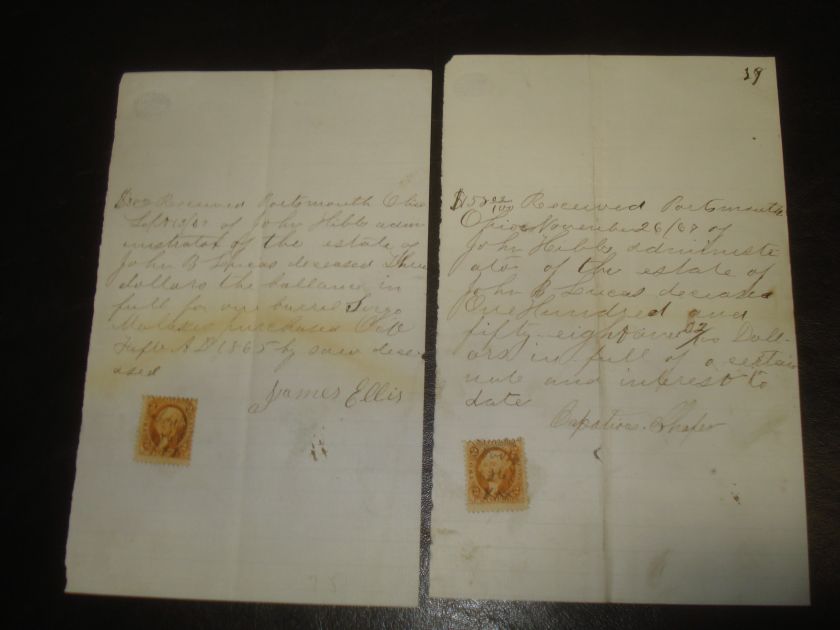 Received Portsmouth Ohio
of John Hibbs admi-
nistrator of the estate of
John B Lucas deceased Three
dollars the ballance in
full for one barrel Sorgo
purchased Oct
A D 1865 by said dece-
ased
James Ellis
19
$158 02/100 Received Portsmouth
Ohio November 26/67 of
John Hibbs administr
ator of the estate of
John B Lucas deceased
One Hundred and
fifty eight and 02/100 Doll-
ars in full of a certain
note and interest to
date
Shafer